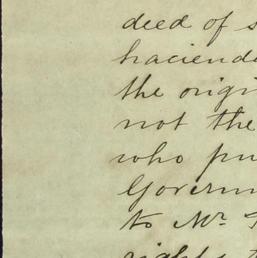 deed of s
haciend
the origi
not the
who pu
Governm
to Mr.
rights t